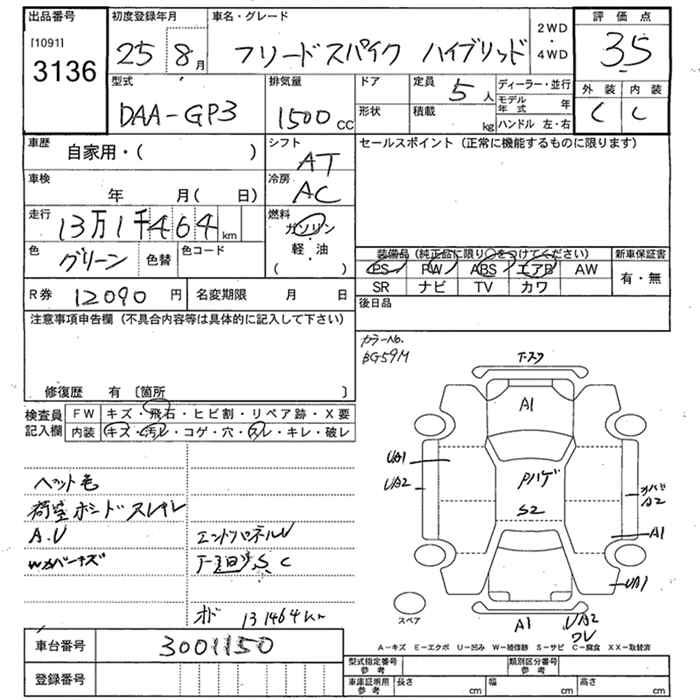 出品番号
[1091]
3136
初度登録年月
25 8月
車名・グレード
フリードスパイク ハイブリッド
2WD
・
4WD
評価点
3.5
外装 内装
C C
型式
DAA-GP3
排気量
1500 CC
ドア
形状
定員 5 人
積載 kg
ディーラー・並行
モデル年式 年
ハンドル 左・右
車歴
自家用・( )
シフト
AT
車検
年 月( 日)
冷房
AC
走行
13万1千464 km
燃料
ガソリン
・
軽・油
( )
色
グリーン
色替
色コード
セールスポイント (正常に機能するものに限ります)
装備品 (純正品に限り○をつけてください)
新車保証書
PS PW ABS エアB AW
SR ナビ TV カワ
有・無
R券 12090 円
名変期限 月 日
後日品
注意事項申告欄 (不具合内容等は具体的に記入して下さい)
修復歴 有 〔箇所 〕
カラーNo.
BG59M
検査員
記入欄
FW キズ・飛石・ヒビ割・リペア跡・X要
内装 キズ・汚レ・コゲ・穴・スレ・キレ・破レ
ペット毛
荷室ボードスレキレ
A.U
エンドパネルU
下回りS C
オド 131464km
A1
UA1
UA2
Pハゲ
S2
A2
A1
UA1
A1
UA2
ワレ
スペア
A-キズ E-エクボ U-凹み W-補修跡 S-サビ C-腐食 XX-取替済
車台番号
3001150
登録番号
型式指定番号
参考
類別区分番号
参考
車庫証明用
参考
長さ cm
幅 cm
高さ cm